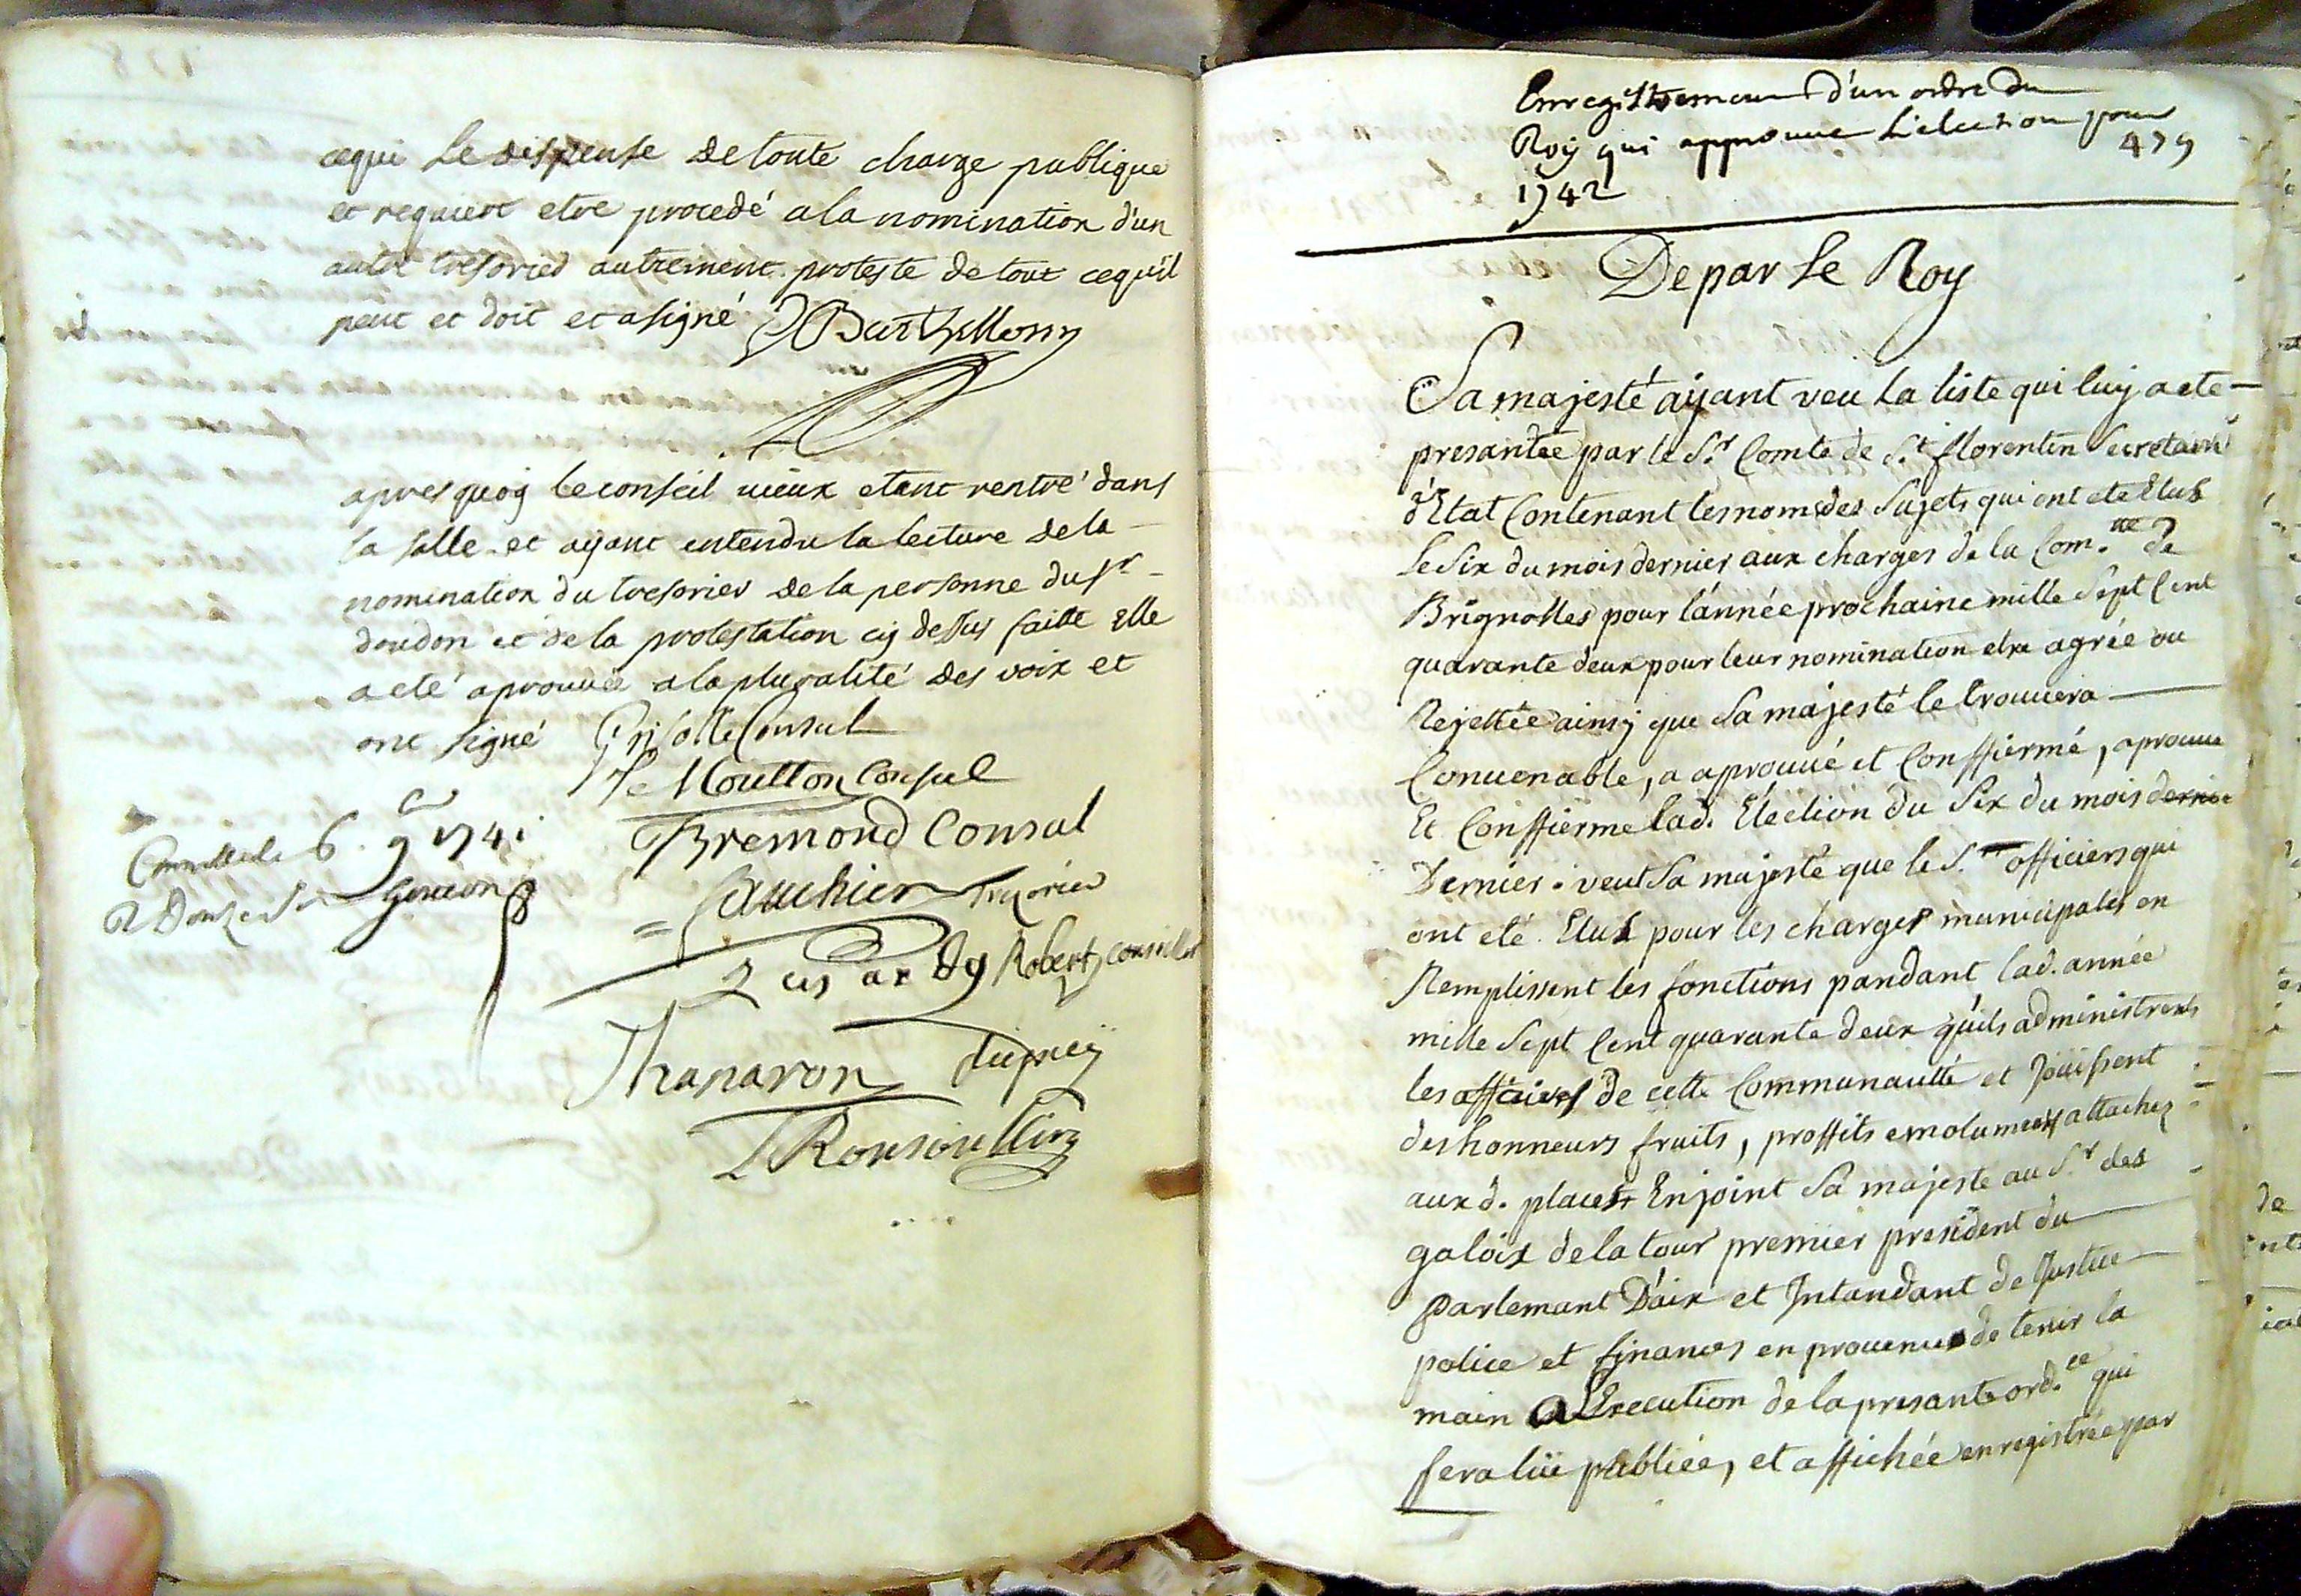 cequi Le dispense de toute charge publique
et requiert etre procedé a la nomination d'un
autre tresorier autrement proteste de tout cequil
peut et doit et a signé Barthellomy
apres quoy le conseil vieux etant rentré dans
la salle et ayant entendu la lecture de la
nomination du tresorier de la personne du sr
doudon et de la protestation cy dessus faitte elle
a eté aprouvée a la pluralité des voix et
ont signé Grisolle Consul
Moutton Consul
Bremond Consul
6 9 1741
Cauchier Trezorier
Robert Conseiller
Thanaron dupuy
Ronsoullin
Enregistrement d'un ordre du
Roy qui approuue L'election pour
1742
479
De par Le Roy
Sa majesté ayant veu La liste qui luy a ete
presantée par le Sr Comte de St florentin Secretaire
d'Etat Contenant les noms des Sujets qui ont ete Elus
Le Six du mois dernier aux charges de la Com.té de
Brignolles pour l'année prochaine mille Sept Cent
quarante deux pour leur nomination etre agrée ou
Rejettée ainsy que Sa majesté le trouuera
Conuenable, a aprouué et Conffiermé, aprouue
Et Conffierme lad. Election du Six du mois dernier
Dernier. veut Sa majesté que les Srs officiers qui
ont eté Elus pour les charges municipales en
Remplissent les fonctions pandant lad. année
mille Sept Cent quarante deux qu'ils administrent
les affaires de cette Communauté et Jouissent
des honneurs fruits, proffits emolumens attachez
aux d. places Enjoint Sa majeste au Sr des
galois de la tour premier president du
parlemant D'aix et Intandant de Justice
police et finances en prouence de tenir la
main a L'Execution de la presante ord.ce qui
sera lüe publiée, et affichée enregistrée par